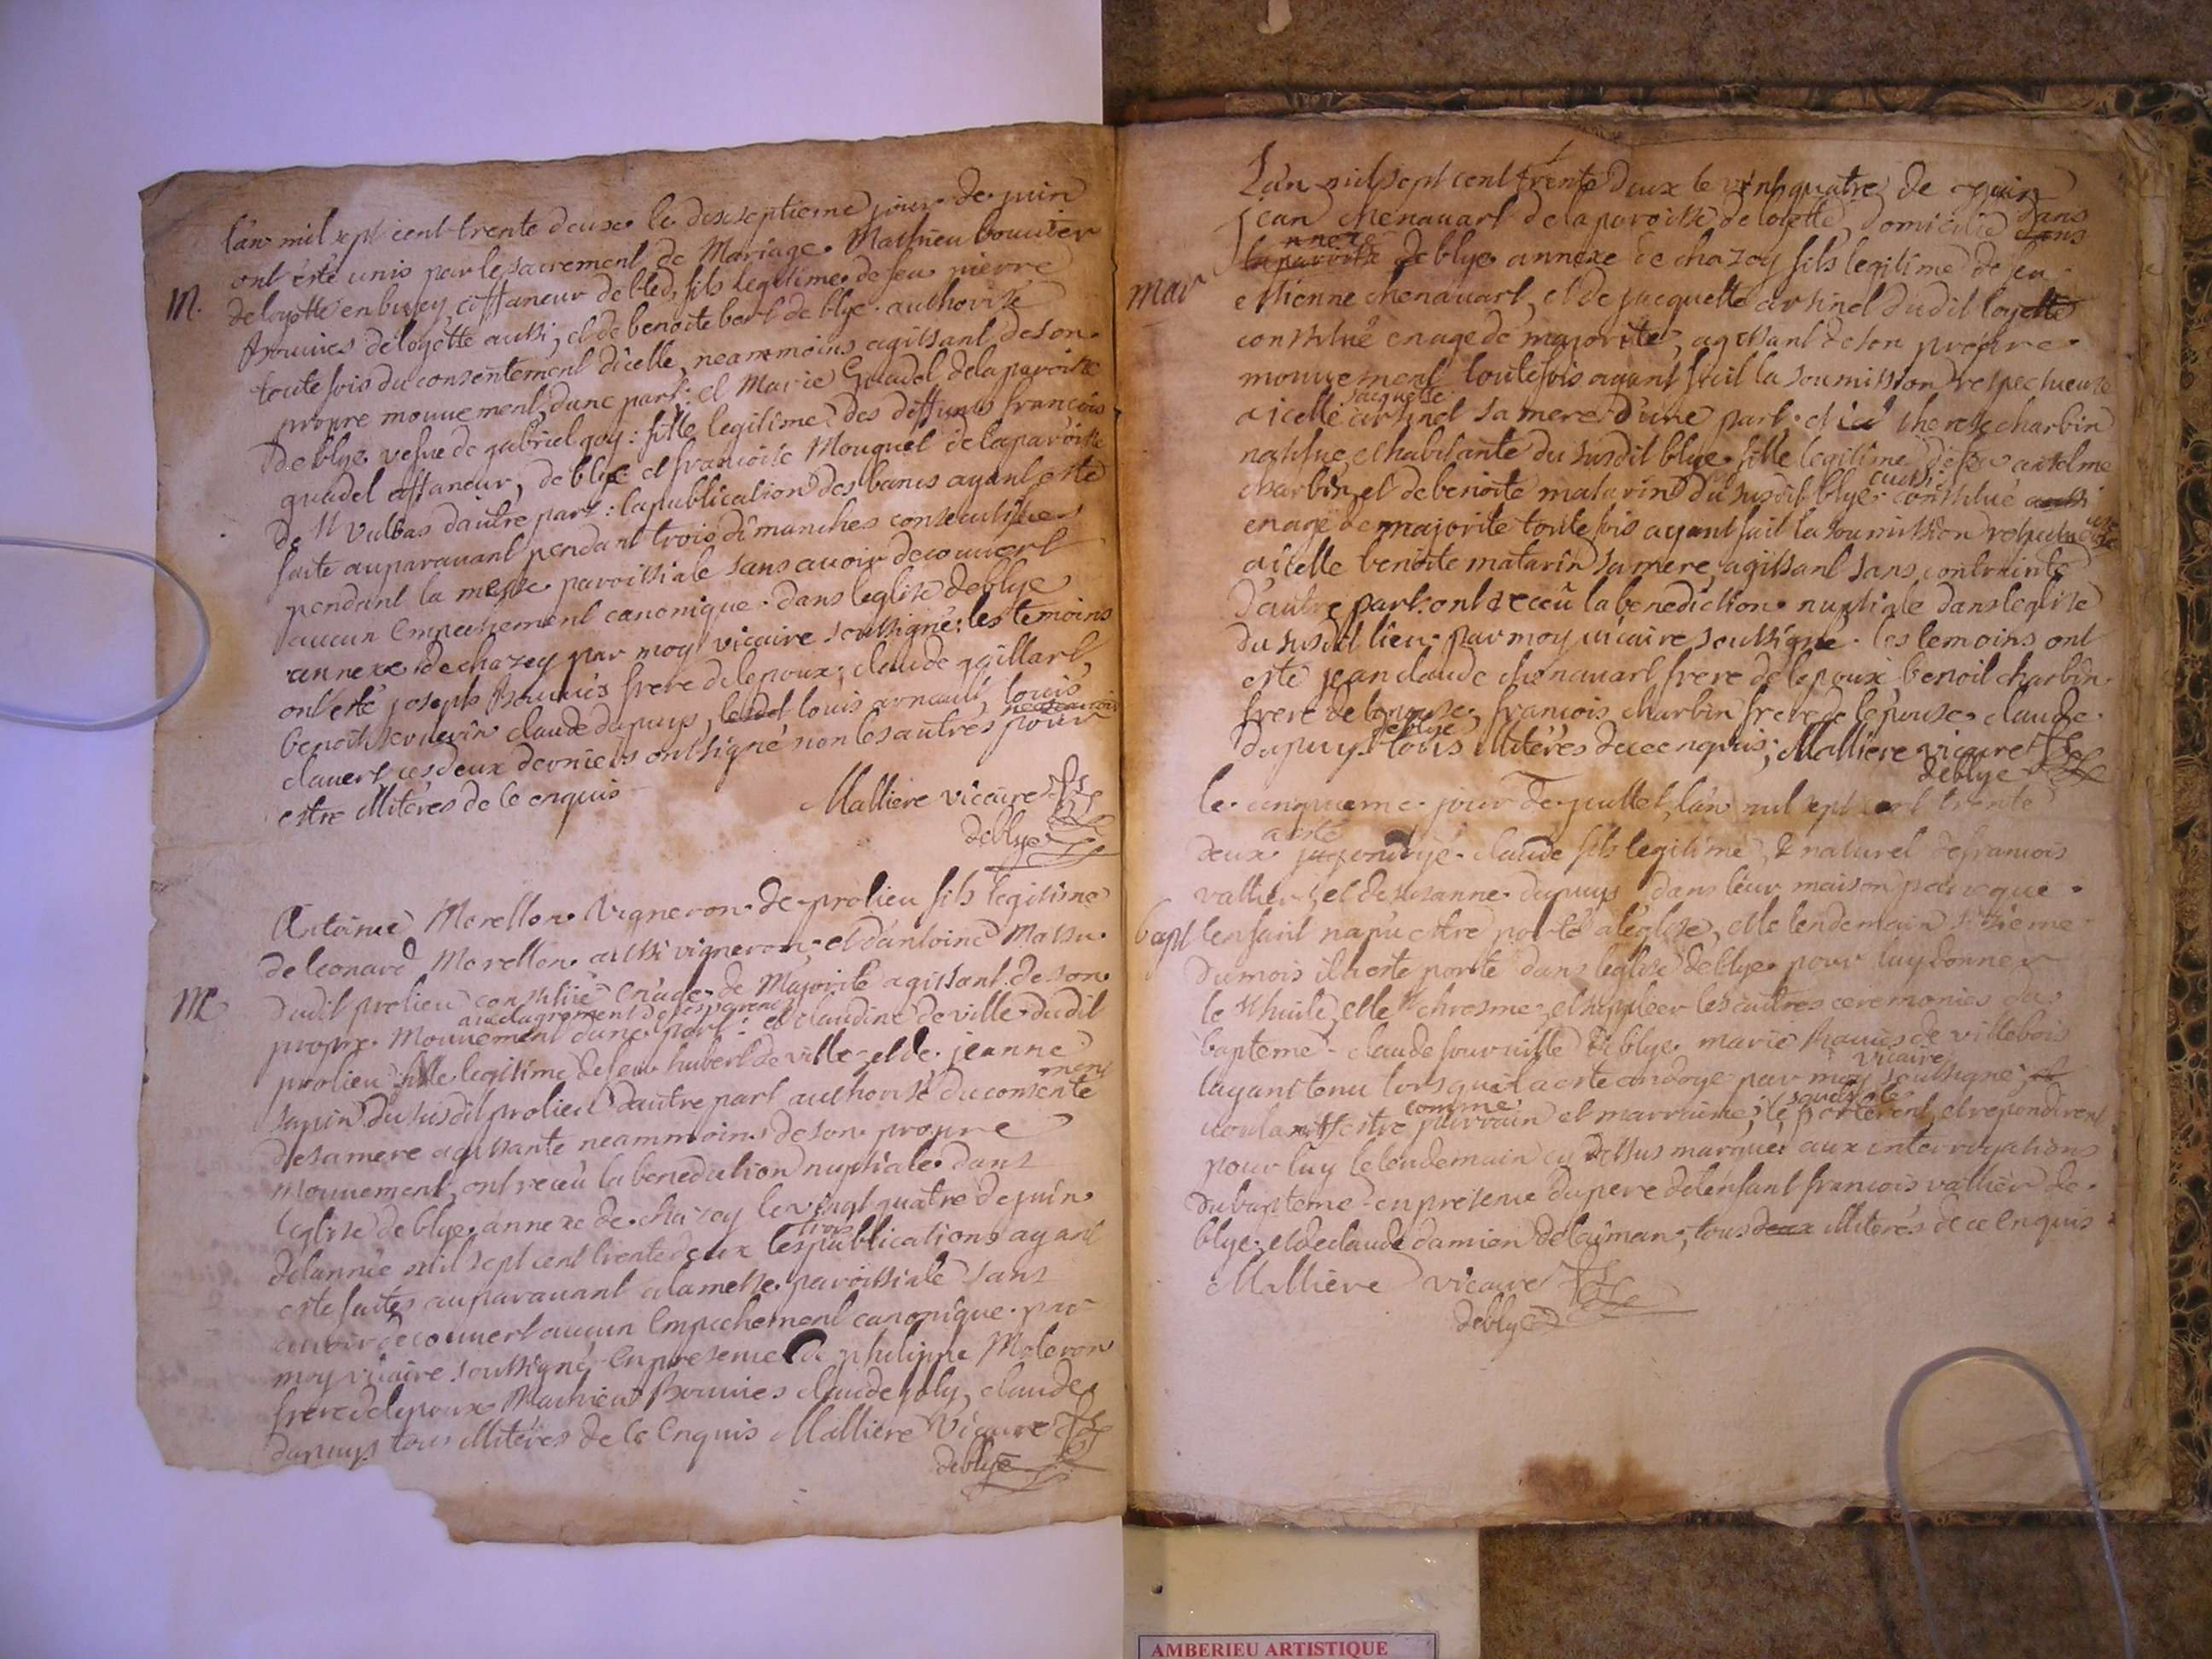 lan mil sept cent trente deux le dixseptieme jour de juin
ont esté unis par le sacrement de Mariage Mathieu bouvier
M.
de loyette en bugey affaneur de bled, fils legitime de feu pierre
bouvies de loyette aussi, et de benoite bert de blye authorizé
toute fois du consentement dicelle, neammoins agissant de son
propre mouvement dune part: et Marie Guadel de la paroisse
de blye vefve de gabriel goy: fille legitime des deffunts francois
guadel affaneur, de blye et francoise Mouquet de la paroisse
de St Vulbas dautre part: la publication des bancs ayant esté
faite auparavant pendant trois dimanches consecutifves
pendant la messe paroissiale sans avoir decouvert
aucun Empechement canonique. dans leglise de blye
annexe de chazey par moy vicaire soussigné: les temoins
ont esté joseph bouvies frere de lepoux, claude gaillart,
benoit claude dupuys, louis arnault, louis
clavert, ces deux derniers ont signé non les autres pour
estre illiteres de ce enquis
Malliere vicaire
de blye
Antoine Morellon Vigneron de prolieu fils legitime
de leonard Morellon aussi vigneron, et dantoine Massu
M
dudit prolieu constitué en age de Majorité agissant de son
avec lagrement de ses parents
propre Mouvement dune part: et claudine deville dudit
prolieu fille legitime de feu hubert deville et de jeanne
ment
sapin du susdit prolieu dautre part authorisé du consente
de sa mere agissante neammoins de son propre
Mouvement, ont receu la benediction nuptiale dans
leglise de blye annexe de chazey le vingt quatre de juin
trois
de lannée mil sept cent trente deux les publications ayant
esté faites auparavant a la messe paroissiale sans
avoir decouvert aucun Empechement canonique par
moy vicaire soussigné, En presence de philippe Moleron
frere de lepoux Mathieu Bouvies claude joly, claude
dupuys tous illiteres de ce Enquis Malliere Vicaire
de blye
Lan mil sept cent trente deux le vint quatre de juin
jean chenavart de la paroisse de loyette, domicilié dans
la paroisse de blye annexe de chazey fils legitime de feu
mar
estienne chenavart, et de jacquette arsinet dudit loyette
constitué en age de majorité, agissant de son propre
mouvement toutefois ayant fait la soumission respectueuse
jacquette
a icelle arsinet sa mere d'une part et therese charbin
natifve et habitante du susdit blye fille legitime de feu antelme
aussi
charbin, et de benoite matarin du susdit blye constitué aussi
en age de majorité toute fois ayant fait la soumission
a icelle benoite matarin sa mere, agissant sans contrainte
d'autre part. ont receu la benediction nuptiale dans leglise
du susdit lieu par moy vicaire soussigné. les temoins ont
esté jean claude chenavart frere de lepoux benoit charbin
frere de lepouse, francois charbin frere de lepouse claude
de blye
dupuys tous illiteres de ce enquis; Malliere vicaire
de blye
le cinquieme jour de juillet, lan mil sept cent trente
a esté
deux ondoyé claude fils legitime & naturel de francois
vallier, et de susanne dupuys dans leur maison parceque
bapt
lenfant na pu estre porté a leglise, et le lendemain sixieme
du mois il a esté porté dans leglise de blye pour luy donner
le st huile, et le st chresme, et supleer les autres ceremonies du
bapteme claude fourville de blye marie bouvies de villebois
vicaire
layant tenu lors quil a esté ondoyé par moy soussigné,
comme
voulant estre parrain et marraine; le porterent, et repondirent
pour luy le lendemain cy dessus marqué aux interrogations
du bapteme en presence du pere de lenfant francois vallier de
blye, et de claude damien de laiman, tous deux illiterés de ce Enquis
Malliere vicaire
de blye
AMBERIEU ARTISTIQUE